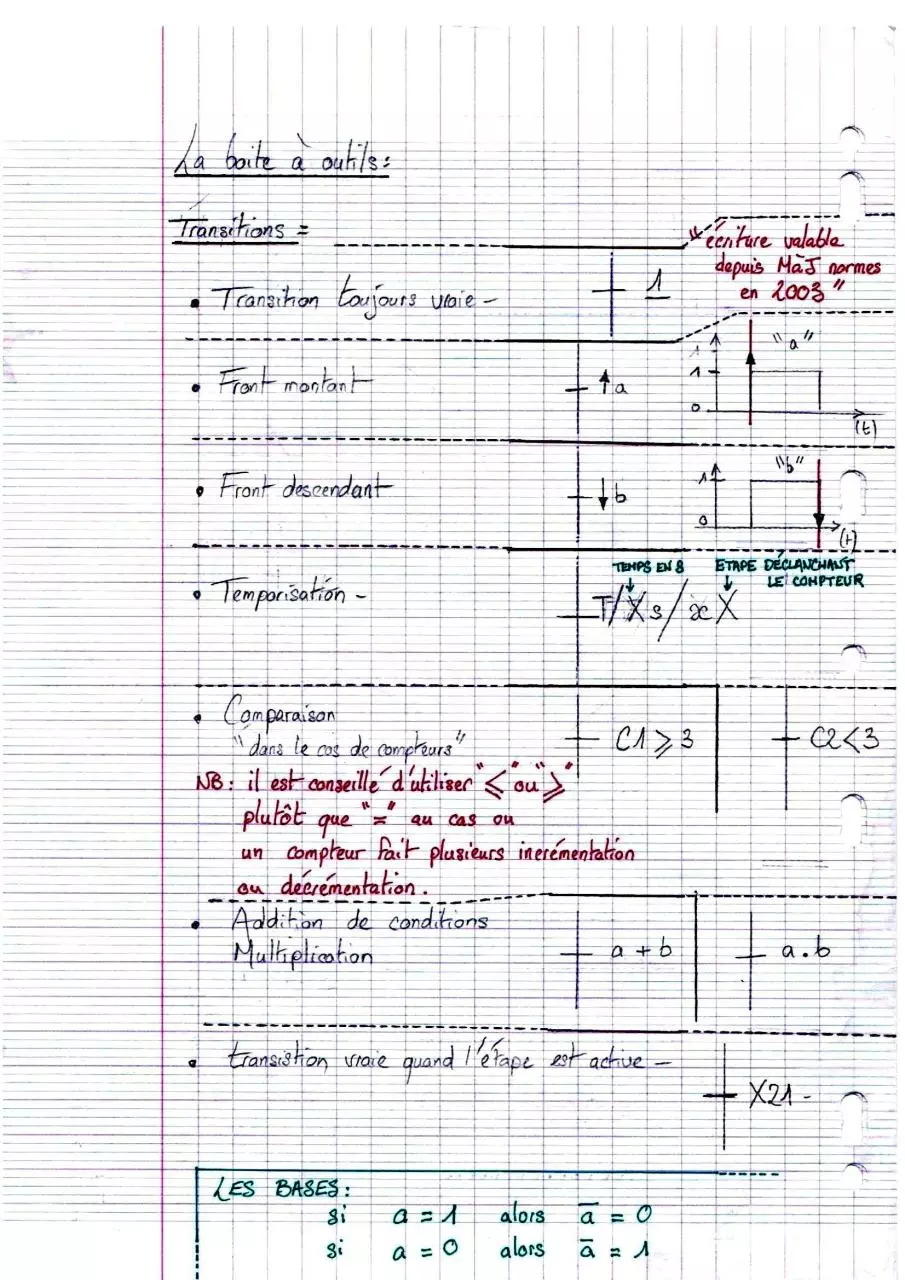 La boite à outils:
Transitions =
"écriture valable
depuis MàJ normes
en 2003"
• Transition toujours vraie -
1
• Front montant
↑a
"a"
1
1
0
(t)
• Front descendant
↓b
"b"
1
0
(t)
TEMPS EN S
ETAPE DÉCLANCHANT
LE COMPTEUR
• Temporisation -
T/Xs/xX
• Comparaison
"dans le cas de compteurs"
C1 ⩾ 3
C2<3
NB: il est conseillé d'utiliser "⩽" ou "⩾"
plutôt que "=" au cas ou
un compteur fait plusieurs incrémentation
ou décrémentation.
• Addition de conditions
Multiplication
a + b
a.b
• transistion vraie quand l'étape est active -
X21 -
LES BASES:
si a = 1 alors a̅ = 0
si a = 0 alors a̅ = 1